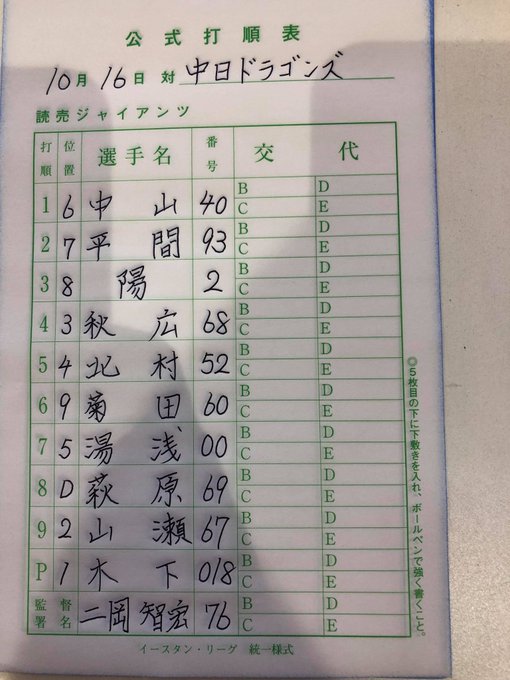 公式打順表
10月16日 対 中日ドラゴンズ
読売ジャイアンツ
打順 位置 選手名 番号 交代
1 6 中山 40 B C D E
2 7 平間 93 B C D E
3 8 陽 2 B C D E
4 3 秋広 68 B C D E
5 4 北村 52 B C D E
6 9 菊田 60 B C D E
7 5 湯浅 00 B C D E
8 D 萩原 69 B C D E
9 2 山瀬 67 B C D E
P 1 木下 018 B C D E
監督署名 二岡智宏 76 B C D E
イースタン・リーグ 統一様式
◎5枚目の下に下敷きを入れ、ボールペンで強く書くこと。